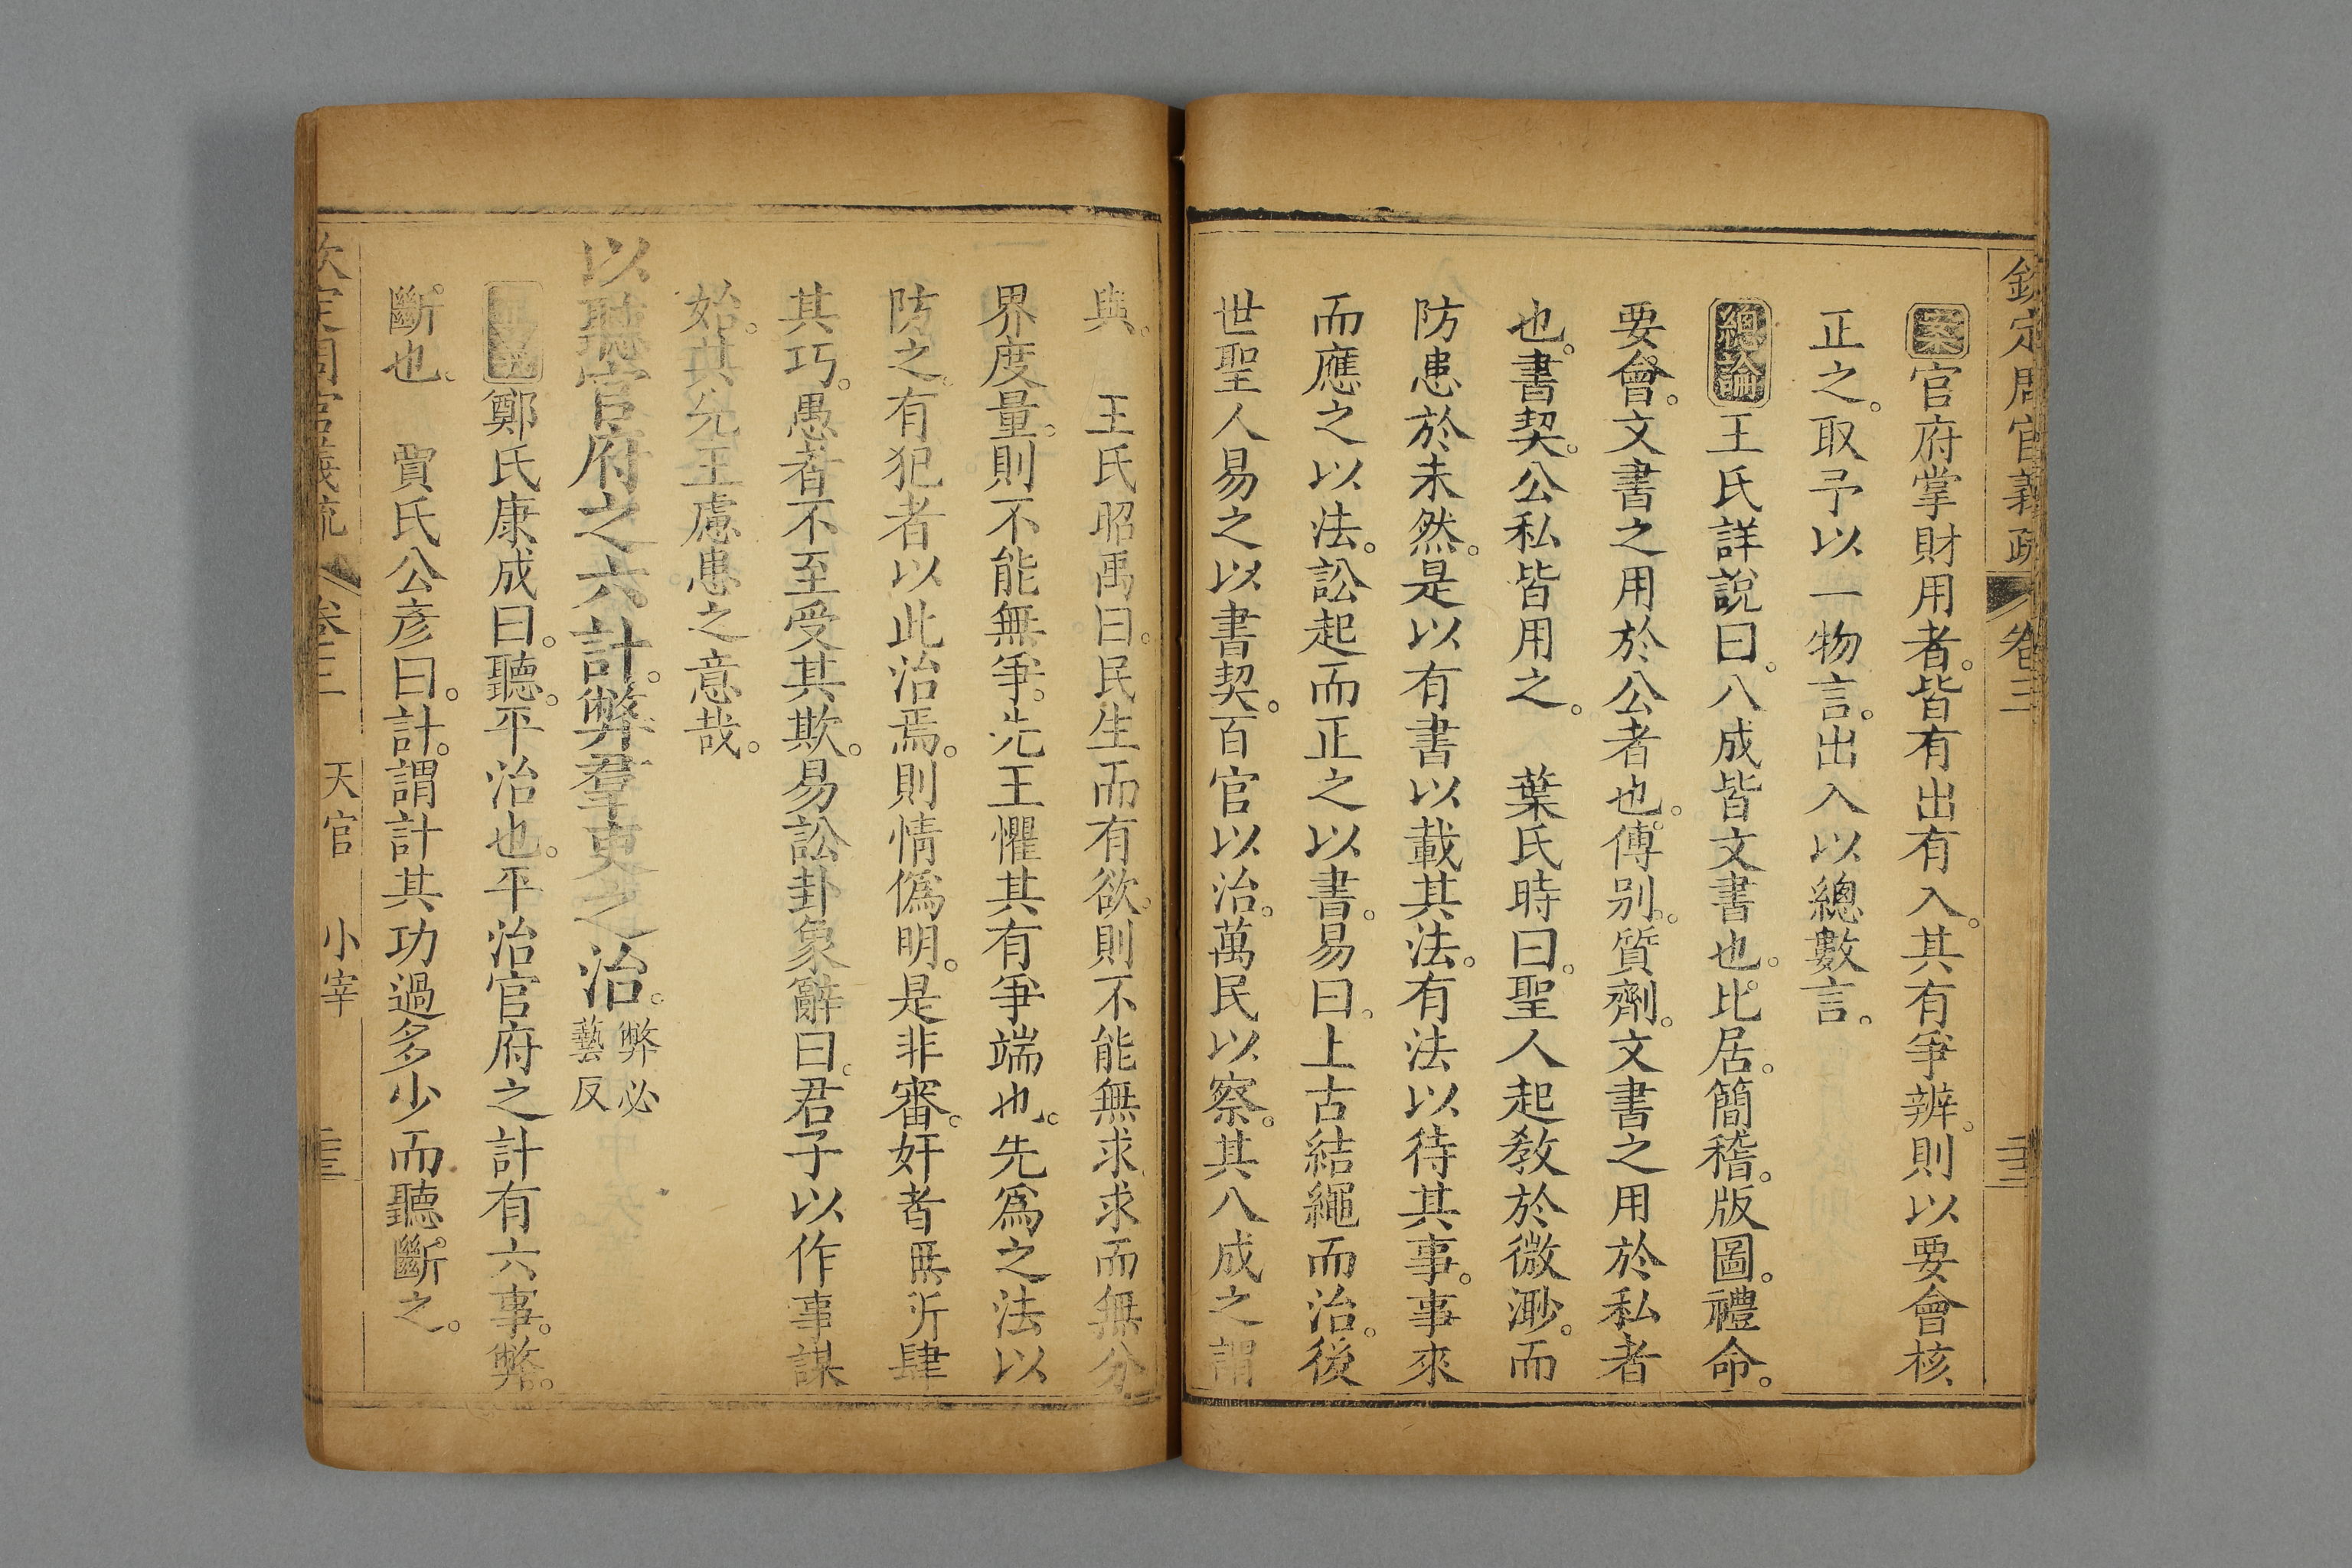 欽定周官義疏 卷三
案官府掌財用者。皆有出有入。其有爭辨。則以要會核
正之。取予以一物言。出入以總數言。
總論王氏詳說曰。八成皆文書也。比居。簡稽。版圖。禮命。
要會。文書之用於公者也。傅别。質劑。文書之用於私者
也。書契。公私皆用之。 葉氏時曰。聖人起教於微渺。而
防患於未然。是以有書以載其法。有法以待其事。事來
而應之以法。訟起而正之以書。易曰。上古結繩而治。後
世聖人易之以書契。百官以治。萬民以察。其八成之謂
與。 王氏昭禹曰。民生而有欲。則不能無求。求而無分
界度量。則不能無爭。先王懼其有爭端也。先爲之法以
防之。有犯者以此治焉。則情僞明。是非審。奸者無所肆
其巧。愚者不至受其欺。易訟卦象辭曰。君子以作事謀
始。其先王慮患之意哉。
以聽官府之六計。弊羣吏之治。弊必藝反
鄭氏康成曰。聽。平治也。平治官府之計有六事。弊。
斷也。 賈氏公彦曰。計。謂計其功過多少而聽斷之。
欽定周官義疏 卷三 天官 小宰